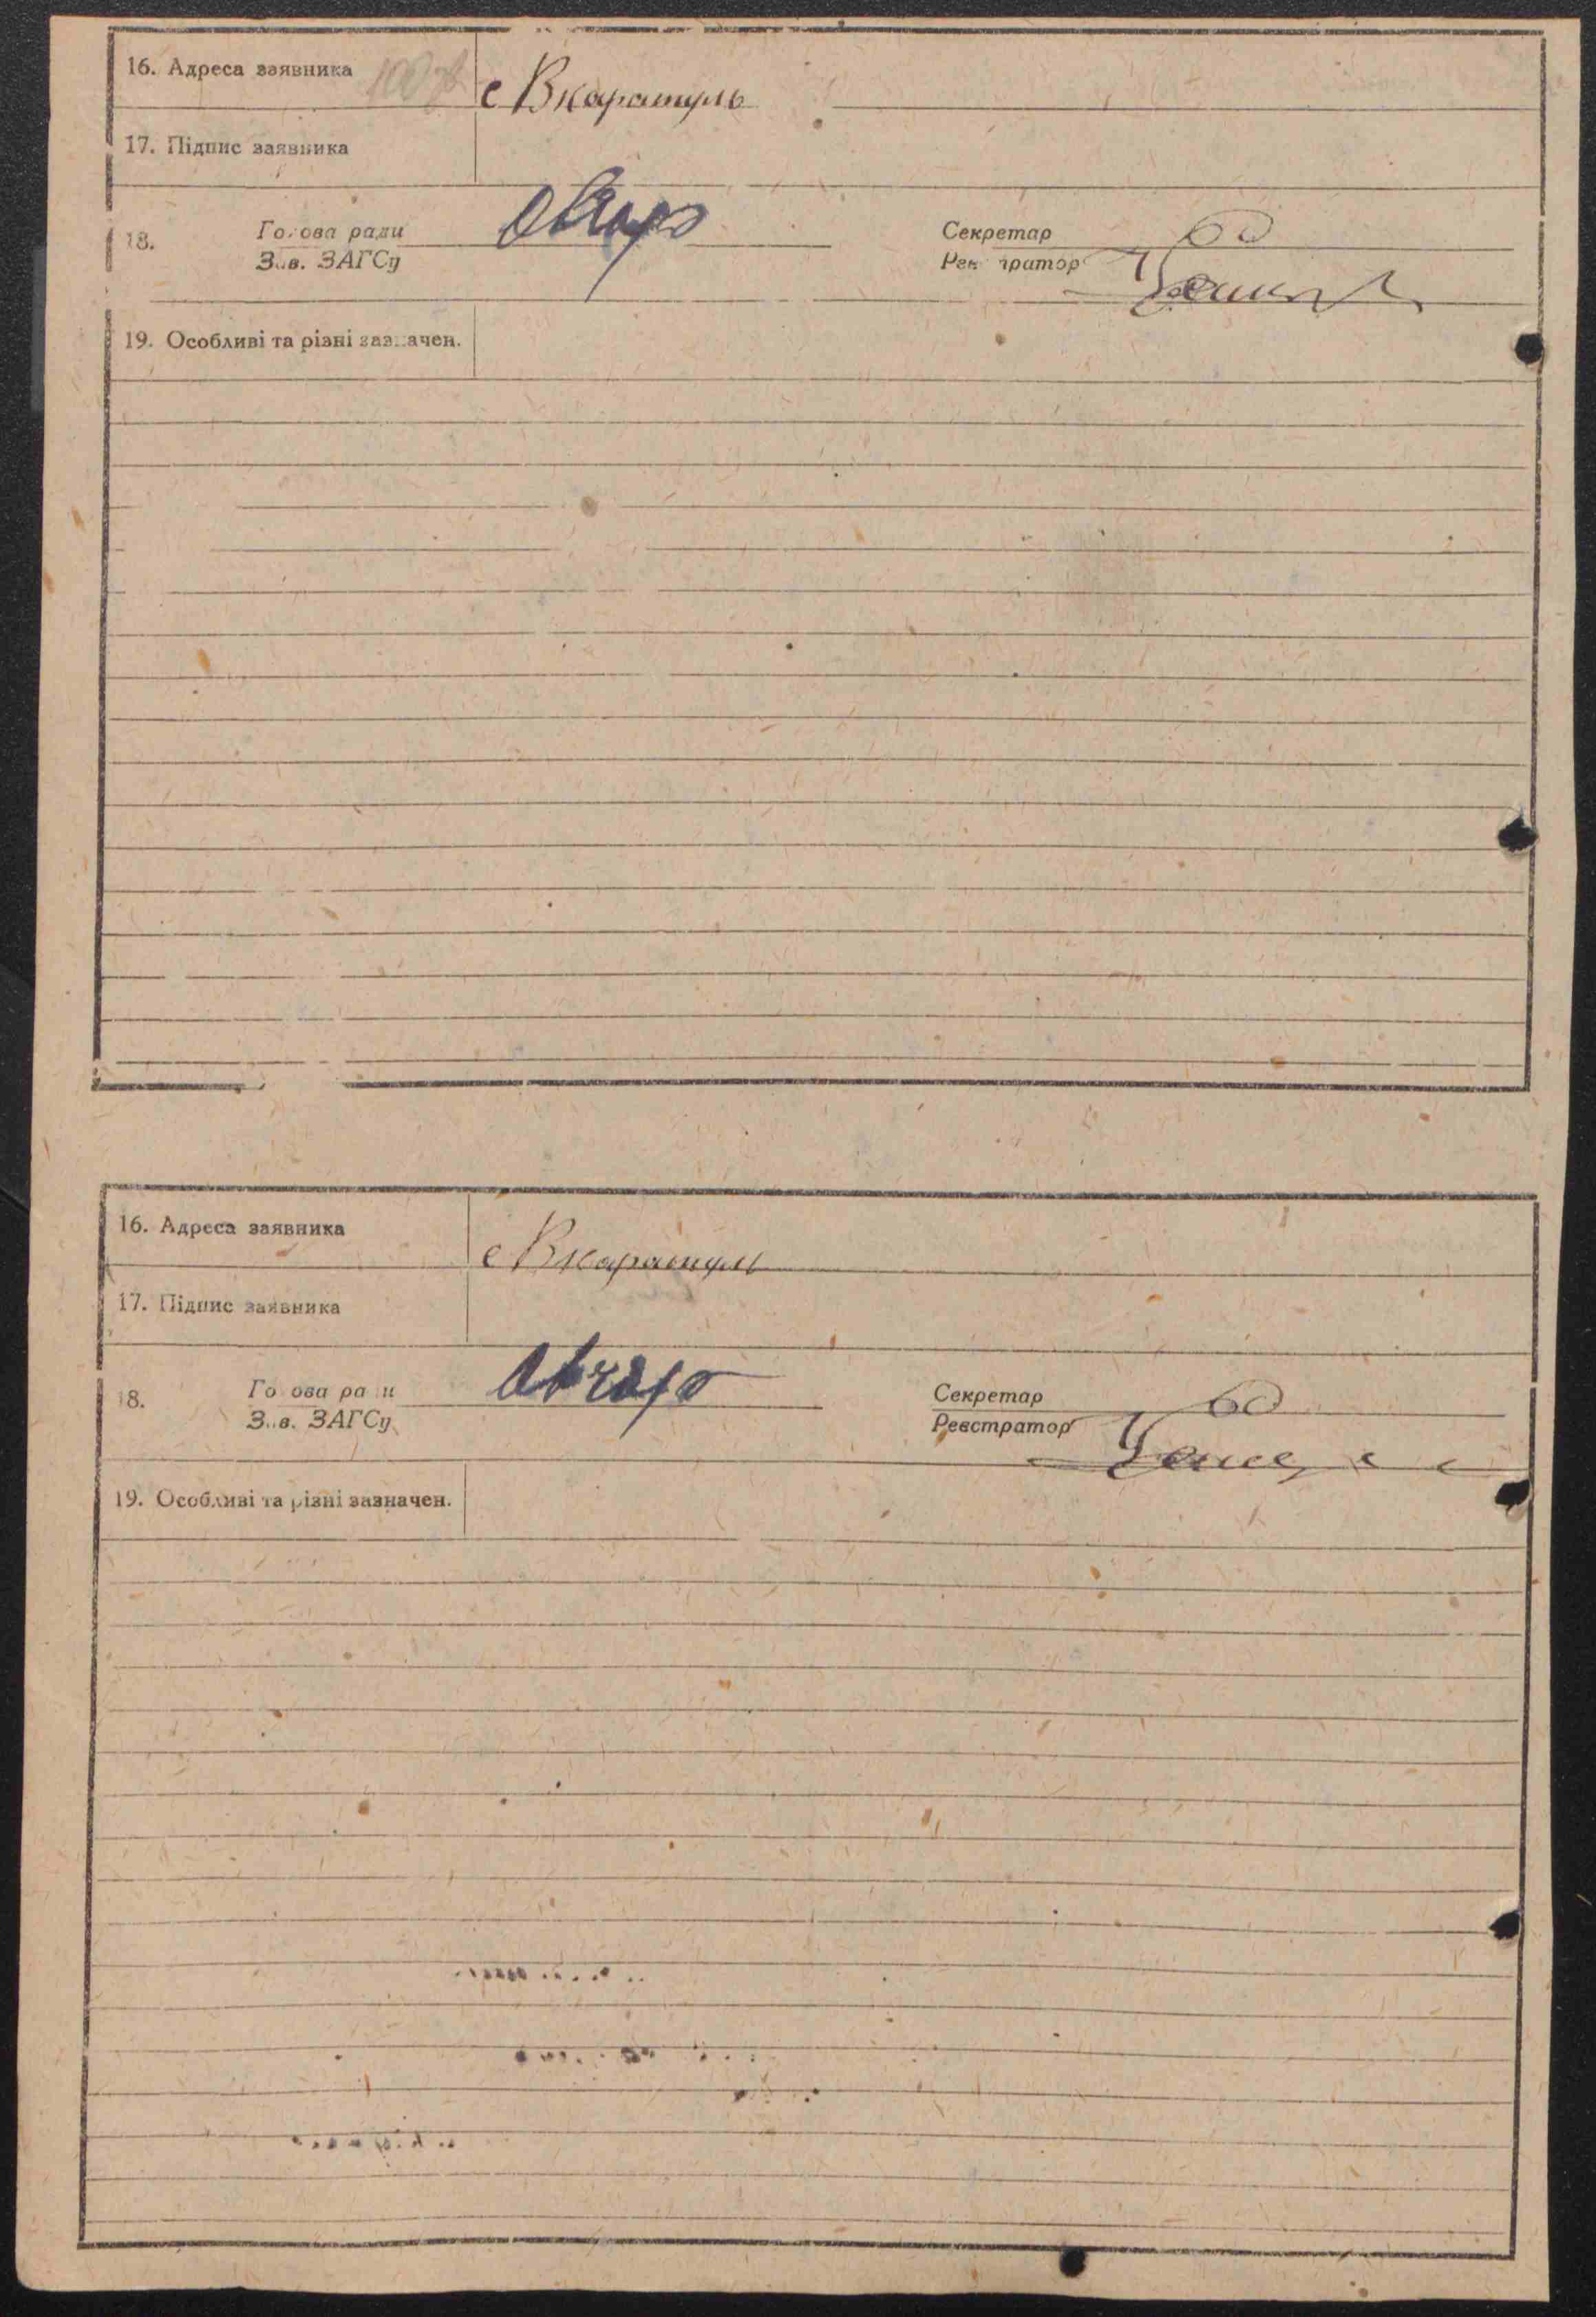 16. Адреса заявника с Вкаратуль
17. Підпис заявника
18. Голова ради Секретар
Зав. ЗАГСу Реєстратор
19. Особливі та різні зазначен.
16. Адреса заявника с Вкаратуль
17. Підпис заявника
18. Голова ради Секретар
Зав. ЗАГСу Реєстратор
19. Особливі та різні зазначен.